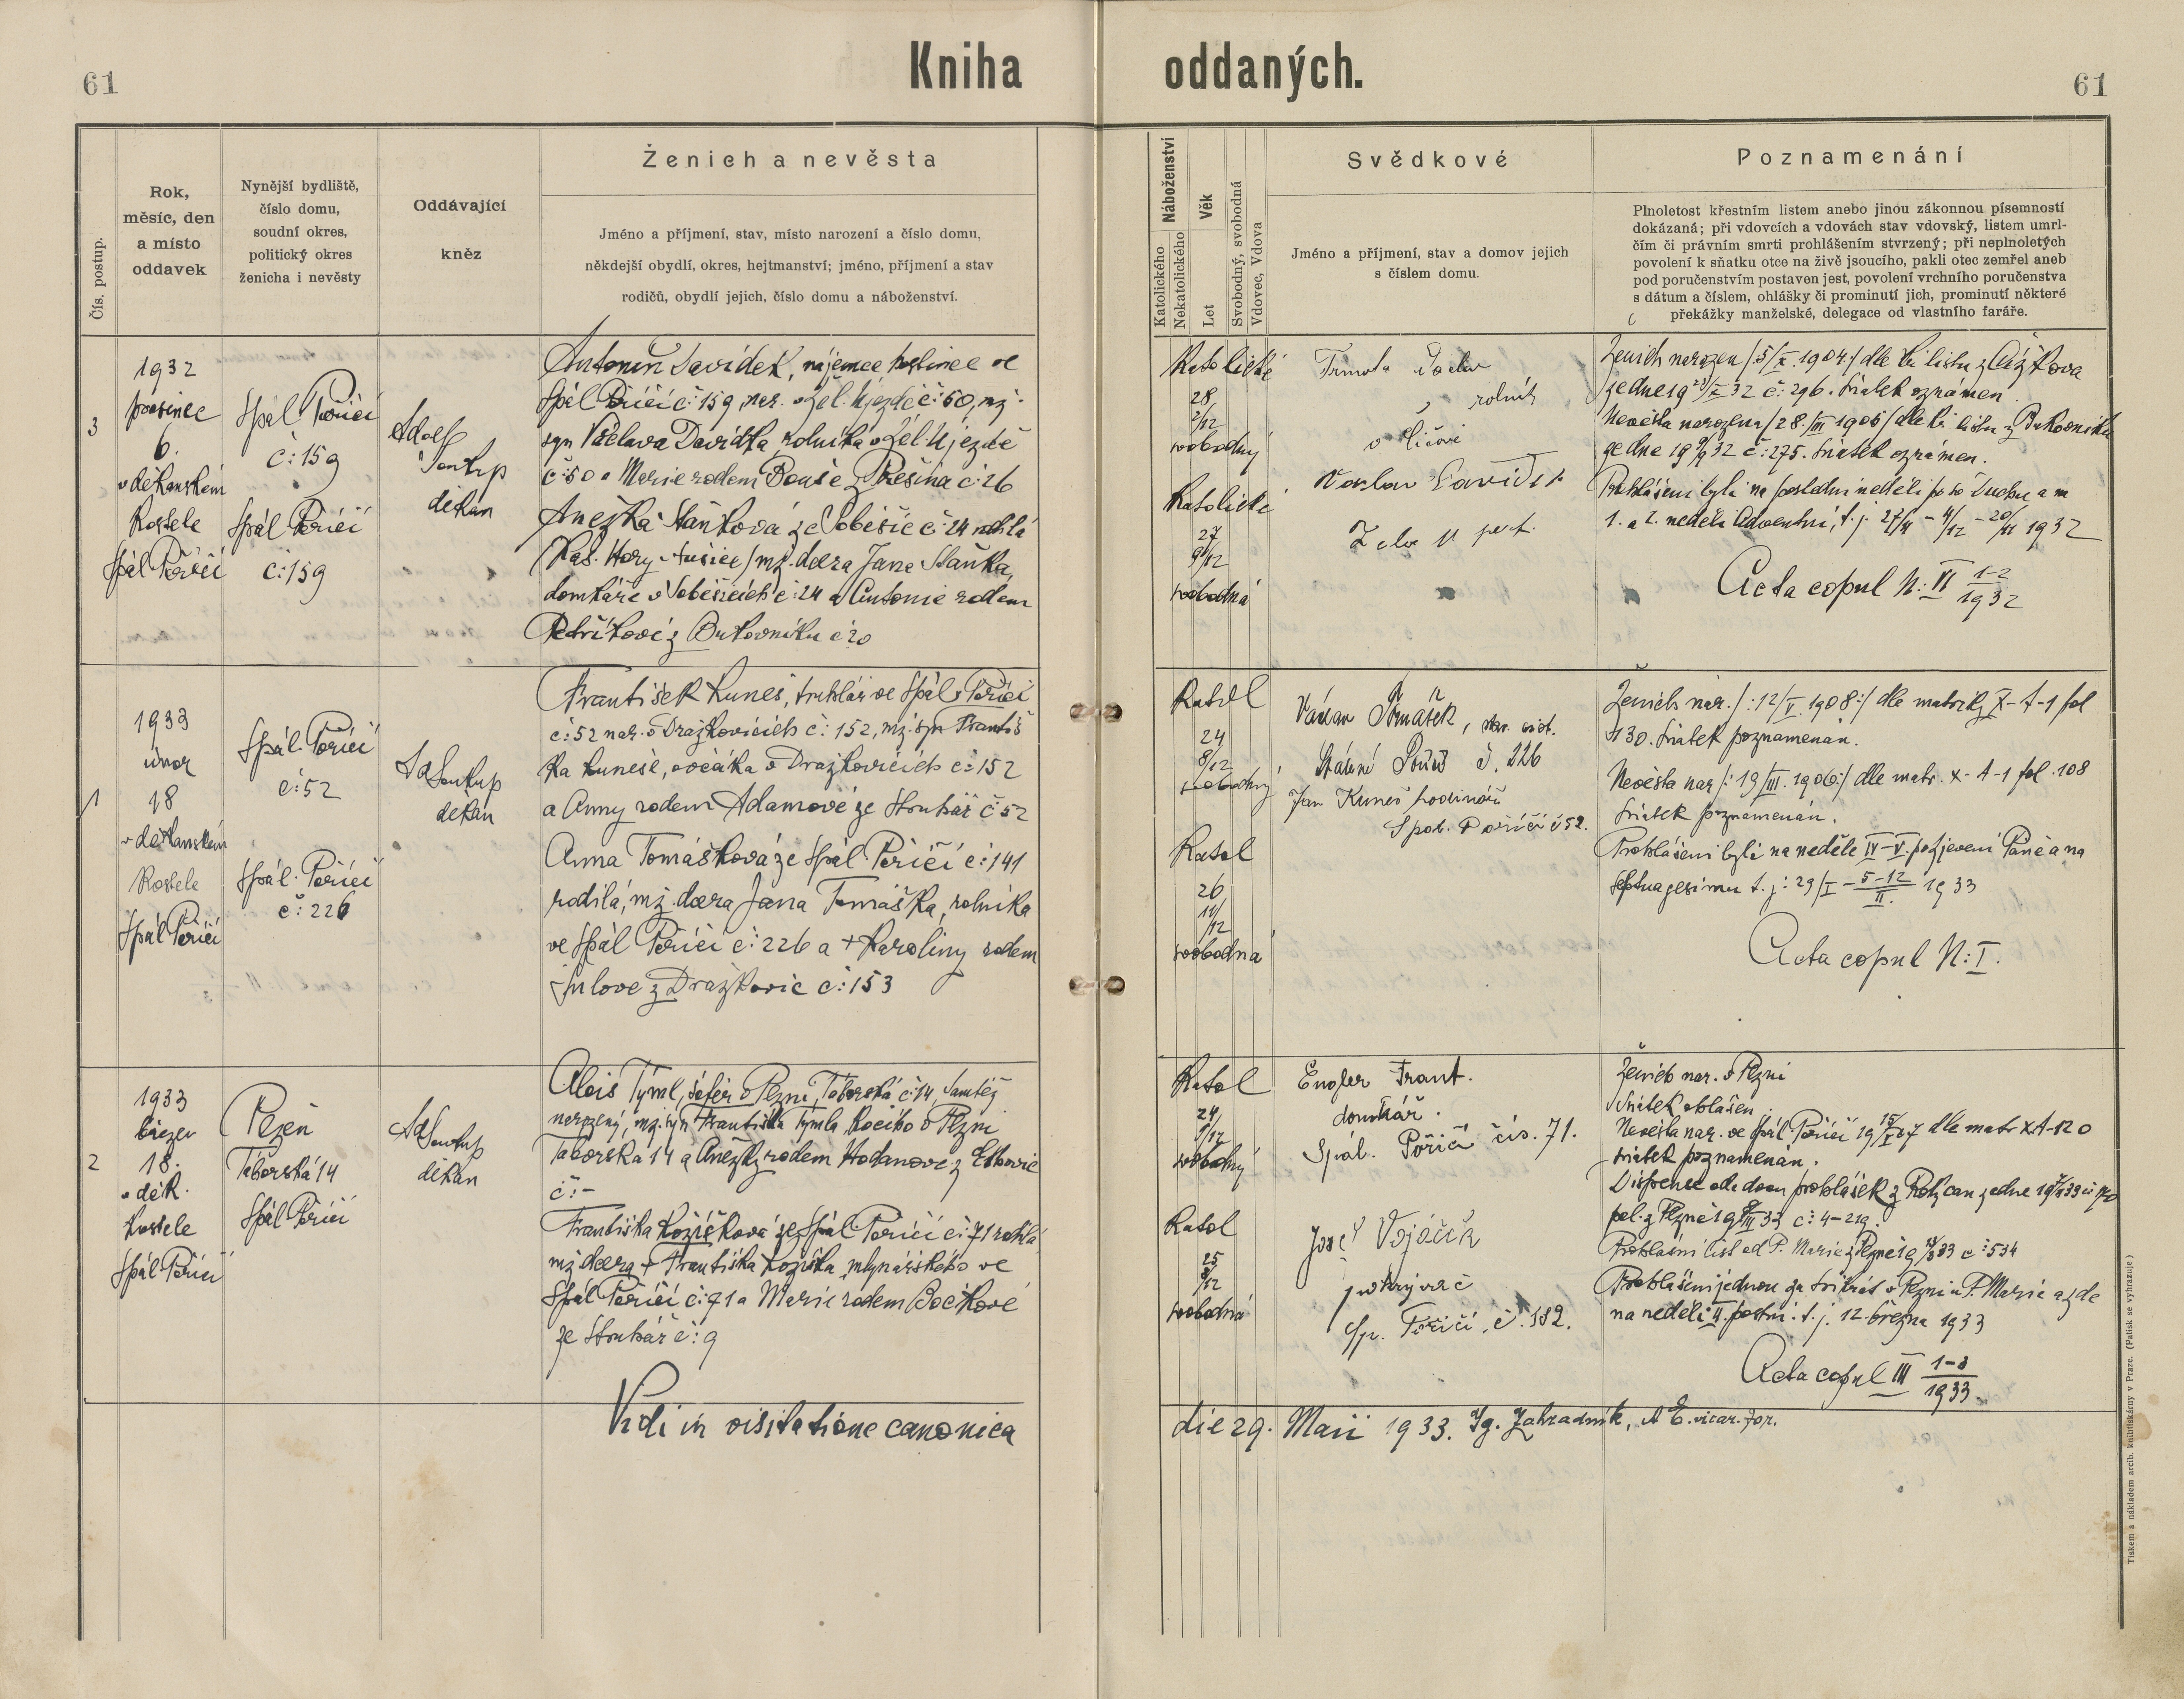 61
Kniha oddaných.
61
Čís. postup.
Rok,
měsíc, den
a místo
oddavek
Nynější bydliště,
číslo domu,
soudní okres,
politický okres
ženicha i nevěsty
Oddávající
kněz
Ženich a nevěsta
Jméno a příjmení, stav, místo narození a číslo domu,
někdejší obydlí, okres, hejtmanství; jméno, příjmení a stav
rodičů, obydlí jejich, číslo domu a náboženství.
Náboženství
Katolického
Nekatolického
Věk
Let
Svobodný, svobodná
Vdovec, Vdova
Svědkové
Jméno a příjmení, stav a domov jejich
s číslem domu.
Poznamenání
Plnoletost křestním listem anebo jinou zákonnou písemností
dokázaná; při vdovcích a vdovách stav vdovský, listem umrl-
čím či právním smrti prohlášením stvrzený; při neplnoletých
povolení k sňatku otce na živě jsoucího, pakli otec zemřel aneb
pod poručenstvím postaven jest, povolení vrchního poručenstva
s dátum a číslem, ohlášky či prominutí jich, prominutí některé
překážky manželské, delegace od vlastního faráře.
3
1932
prosinec
6.
v děkanském
kostele
Spál Poříčí
Spál Poříčí
č: 159
Spál Poříčí
č: 159
Adolf
Soukup
děkan
Antonín Davídek, nájemce hostince ve
Spál Poříčí č: 159, nar. v Žel. Újezdě č: 50, mž.
syn Václava Davídka, rolníka v Žel. Újezdě
č: 50 a Marie rodem Bouše z Třešina č: 26
Anežka Staňková ze Soběšic č: 24 rodilá
(Kaš. Hory - Sušice) mž. dcera Jana Staňka,
domkáře v Soběšicích č: 24 a Antonie rodem
Petříkové z Bukovníku č 20
Katolické
28
2/12
svobodný
Katolické
27
9/12
svobodná
Trmota Václav
rolník
v Líčově
Václav Davídek
Ženich narozen /:5/X. 1904:/ dle kř. listu z Čížkova
ze dne 19 25/X 32 č: 296. Sňatek oznámen
Nevěsta narozena /28./III 1905/ dle kř. listu z Bukovníka
ze dne 19 32 č: 275. Sňatek oznámen.
Prohlášeni byli na poslední neděli po sv Duchu a na
1. a 2. neděli Adventní, t. j. 27/11 - 4/12 1932
Acta copul N: VI 1-2/1932
1
1933
únor
18
v děkanském
kostele
Spál Poříčí
Spál. Poříčí
č: 52
Spál. Poříčí
č: 226
Ad Soukup
děkan
František Kuneš, truhlář ve Spál. Poříčí
č: 52 nar. v Dražkovicích č: 152, mž. syn Františ
ka Kuneše, ovčáka v Dražkovicích č: 152
a Anny rodem Adamové ze Struhař č 52
Anna Tomášková ze Spál. Poříčí č: 141
rodilá, mž. dcera Jana Tomáška, rolníka
ve Spál Poříčí č: 226 a + Karoliny rodem
Šulove z Dražkovic č: 153
Katol
24
8/12
svobodný
Katol
26
11/12
svobodná
Václav Tomášek,
č. 226
Jan Kuneš hodinář
Spál. Poříčí č 52.
Ženich nar. /:12/V. 1908:/ dle matriky X-A-1 fol
130. Sňatek poznamenán.
Nevěsta nar /: 19/III. 1906:/ dle matr. X-A-1 fol. 108
Sňatek poznamenán.
Prohlášeni byli na neděle IV-V. po zjevení Páně a na
Septuagesimu t. j: 29/I - 5-12/II. 1933
Acta copul N: I.
2
1933
březen
18.
v děk.
kostele
Spál Poříčí
Plzeň
Táborská 14
Spál Poříčí
Ad Soukup
děkan
Alois Týml, šofér v Plzni, Táborská č: 14, tamtéž
narozený, mž. syn Františka Týmla kočího v Plzni
Táborská 14 a Anežky rodem Hodanové z
č: -
Františka Kožíšková ze Spál. Poříčí č: 71 rodilá
mž dcera + Františka Kožíška mlynářského ve
Spál Poříčí č: 71 a Marie rodem Bočkové
ze Struhař č: 9
Katol
24
1/12
svobodný
Katol
25
svobodná
Engler Frant.
domkář.
Spál. Poříčí čís. 71.
Josef Vojáček
pokrývač
Sp. Poříčí, č. 182.
Ženich nar. v Plzni
Sňatek ohlášen
Nevěsta nar. ve Spál Poříčí 19 15/I 07 dle matr X A-120
sňatek poznamenán.
Dispence ode dvou prohlášek z Rokycan ze dne
pol. z Plzně 19 33 č: 4-219.
Prohlášní list od P. Marie z Plzně 19 33 č: 534
Prohlášeni jednou za třikrát v Plzni u P. Marie a zde
na neděli II. postní. t. j. 12. března 1933
Acta copul III 1-3/1933.
Vidi in visitatione canonica
die 29. Maii 1933. Ig. Zahradník, A E. vicar. for.
Tiskem a nákladem arcib. knihtiskárny v Praze. (Patisk se vyhrazuje.)